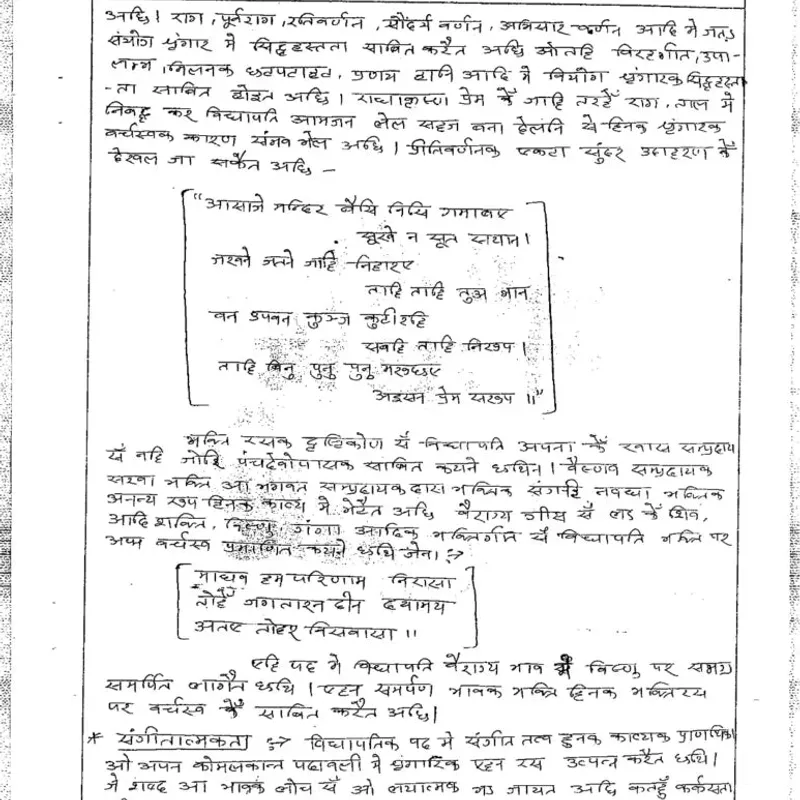 अछि। राग, पूर्वराग, रतिवर्णन, सौंदर्य वर्णन, अभिसार वर्णन आदि मे जतऽ
संयोग श्रृंगार मे सिद्धहस्तता साबित करैत अछि ओतहि विरहगीत, उपा-
लम्भ, मिलनक छटपटाहट, प्रणय आदि मे वियोग श्रृंगारक सिद्धहस्त
-ता साबित होइत अछि। राधाकृष्ण प्रेम कें जाहि तरहें राग, ताल मे
निबद्ध कर विद्यापति आमजन लेल सहज बना देलनि से हिनक श्रृंगारक
वर्चस्वक कारण संभव भेल अछि। प्रीतिवर्णनक एकटा सुंदर उदाहरण कें
देखल जा सकैत अछि -
"आसाञे मन्दिर बैसि निसि गमाबए
सुखे न सूत सयान।
जखने जतने जाहि निहारए
ताहि ताहि तुअ भान
वन उपवन कुञ्ज कुटीरहि
सबहि ताहि निरूप।
ताहि बिनु पुनु पुनु मरुछए
अइसन प्रेम सरूप॥"
भक्ति रसक दृष्टिकोण सँ विद्यापति अपना कें खास सम्प्रदाय
सँ नहि जोड़ि पंचदेवोपासक साबित कयने छथिन। वैष्णव सम्प्रदायक
सख्य भक्ति आ भगवत सम्प्रदायक दास भक्तिक संगहि नवधा भक्तिक
अनन्य रूप हिनक काव्य मे भेटैत अछि वैराग्य गीत सँ लऽ कें शिव,
आदि शक्ति, विष्णु, गंगा आदिक भक्तिगीत सँ विद्यापति भक्ति पर
अपन वर्चस्व प्रमाणित कयने छथि जेना :->
माधव हम परिणाम निरासा
तोहें जगतारन दीन दयामय
अतए तोहर बिसवासा॥
एहि पद मे विद्यापति वैराग्य भाव में विष्णु पर समग्र
समर्पित लागैत छथि। एहन समर्पण भावक भक्ति हिनक भक्तिरस
पर वर्चस्व कें साबित करैत अछि।
* संगीतात्मकता :-> विद्यापतिक पद मे संगीत तत्व हुनक काव्यक प्राण थिक।
ओ अपन कोमलकान्त पदावली मे श्रृंगारिक एहन रस उत्पन्न करैत छथि।
जे शब्द आ भावक लोच सँ ओ लयात्मक भऽ जायत अछि कतहुँ कर्कसता